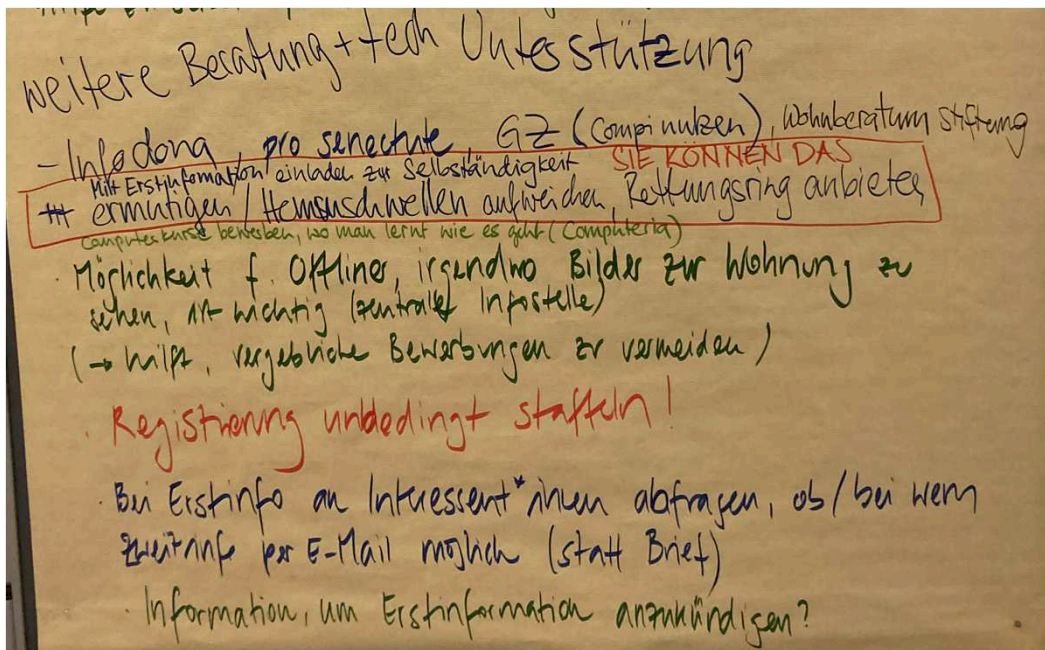 weitere Beratung + tech Unterstützung
- Infodona, pro senectute, GZ (Compi nutzen), Wohnberatung Stiftung
Mit Erstinformation einladen zur Selbständigkeit SIE KÖNNEN DAS
ermutigen / Hemmschwellen aufweichen, Rettungsring anbieten
Computerkurse bewerben, wo man lernt wie es geht (Computeria)
· Möglichkeit f. Offliner, irgendwo Bilder zur Wohnung zu
sehen, ist wichtig (zentrale Infostelle)
(→ hilft, vergebliche Bewerbungen zu vermeiden)
· Registrierung unbedingt staffeln!
· Bei Erstinfo an Interessent*innen abfragen, ob / bei wem
Zweitinfo per E-Mail möglich (statt Brief)
· Information, um Erstinformation anzukündigen?